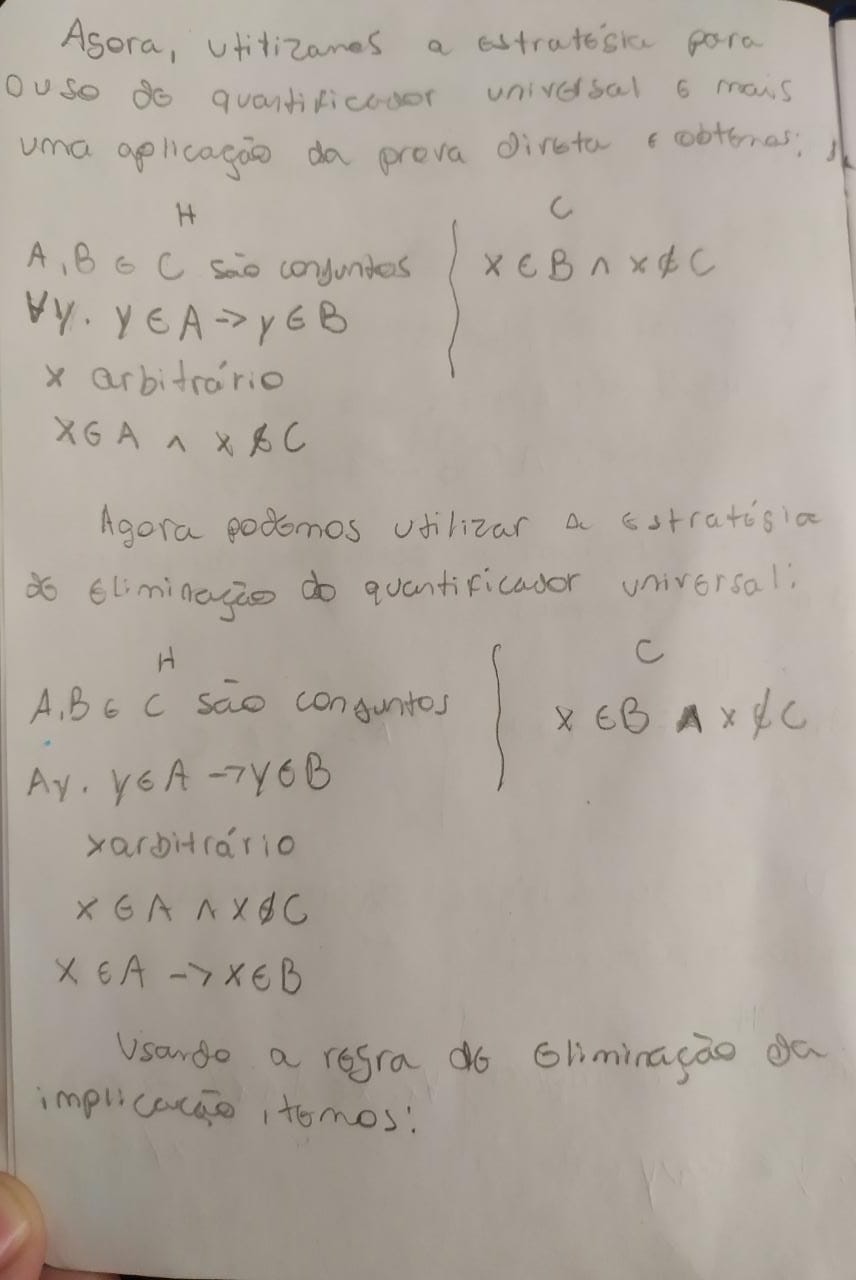 Agora, utitizamos a estratégia para
o uso de quantificador universal e mais
uma aplicação da prova direta e obtemos:
H C
A, B e C são conjuntos x ∈ B ∧ x ∉ C
∀y. y ∈ A -> y ∈ B
x arbitrário
x ∈ A ∧ x ∉ C
Agora podemos utilizar a estratégia
de eliminação do quantificador universal:
H C
A, B e C são conjuntos x ∈ B ∧ x ∉ C
Ay. y ∈ A -> y ∈ B
x arbitrário
x ∈ A ∧ x ∉ C
x ∈ A -> x ∈ B
Usando a regra de eliminação da
implicação, temos: